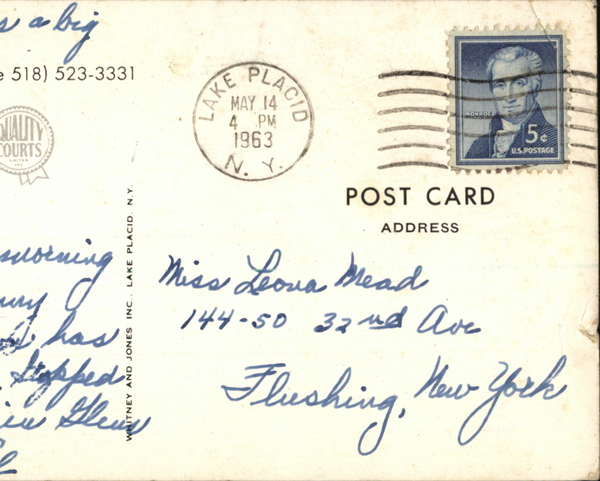 s a big
e 518) 523-3331
QUALITY
COURTS
UNITED
INC.
LAKE PLACID
MAY 14
4 PM
1963
N. Y.
MONROE
5¢
U.S. POSTAGE
POST CARD
ADDRESS
WHITNEY AND JONES INC., LAKE PLACID, N.Y.
morning
has
Stopped
in Glens
Miss Leona Mead
144-50 32nd Ave
Flushing, New York